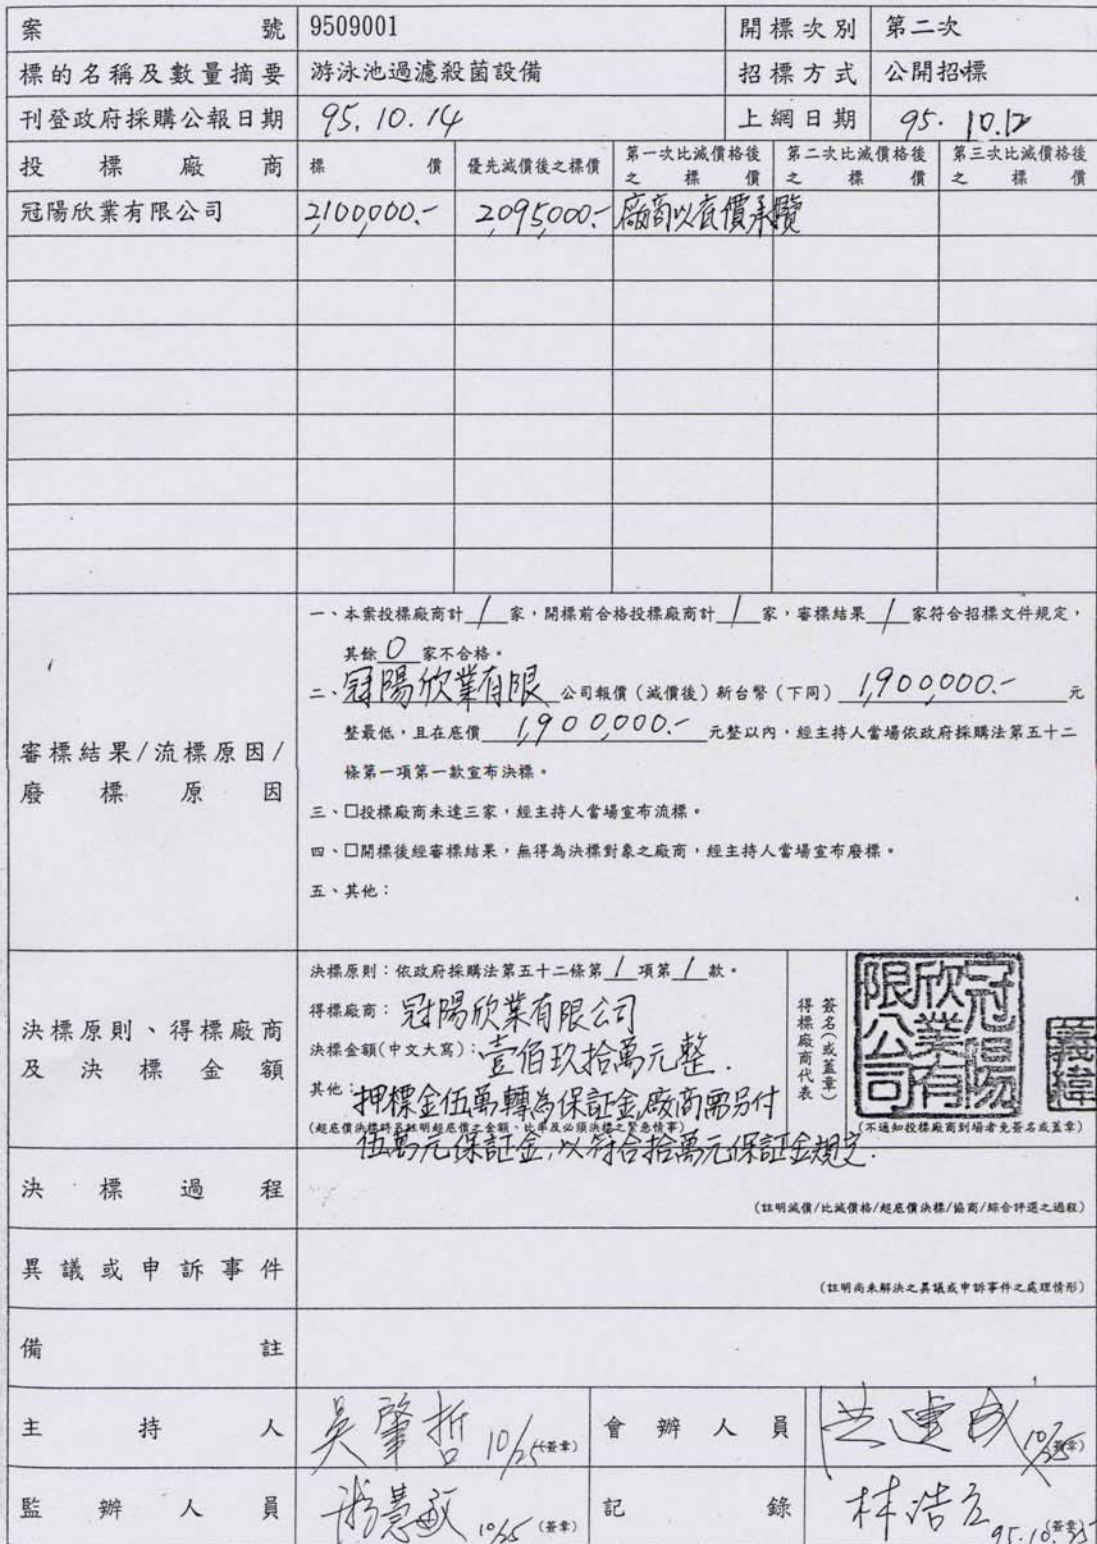 案號 9509001 開標次別 第二次
標的名稱及數量摘要 游泳池過濾殺菌設備 招標方式 公開招標
刊登政府採購公報日期 95.10.14 上網日期 95.10.12
投標廠商 標價 優先減價後之標價 第一次比減價格後之標價 第二次比減價格後之標價 第三次比減價格後之標價
冠陽欣業有限公司 2,100,000.- 2,095,000.- 廠商以底價承攬
審標結果/流標原因/
廢標原因
一、本案投標廠商計1家,開標前合格投標廠商計1家,審標結果1家符合招標文件規定,
其餘0家不合格。
二、冠陽欣業有限公司報價(減價後)新台幣(下同)1,900,000.-元
整最低,且在底價1,900,000.-元整以內,經主持人當場依政府採購法第五十二
條第一項第一款宣布決標。
三、□投標廠商未達三家,經主持人當場宣布流標。
四、□開標後經審標結果,無得為決標對象之廠商,經主持人當場宣布廢標。
五、其他:
決標原則、得標廠商
及決標金額
決標原則:依政府採購法第五十二條第1項第1款。
得標廠商:冠陽欣業有限公司
決標金額(中文大寫):壹佰玖拾萬元整.
其他:押標金伍萬轉為保証金,廠商需另付
(超底價決標時另註明超底價之金額、比率及必須決標之緊急情事)
伍萬元保証金,以符合拾萬元保証金規定.
得標廠商代表
簽名(或蓋章)
冠陽
欣業有
限公司
義緯
(不通知投標廠商到場者免簽名或蓋章)
決標過程
(註明減價/比減價格/超底價決標/協商/綜合評選之過程)
異議或申訴事件
(註明尚未解決之異議或申訴事件之處理情形)
備註
主持人 吳肇哲 10/25 (簽章) 會辦人員 10/25 (簽章)
監辦人員 10/25 (簽章) 記錄 林浩立 95.10.25 (簽章)